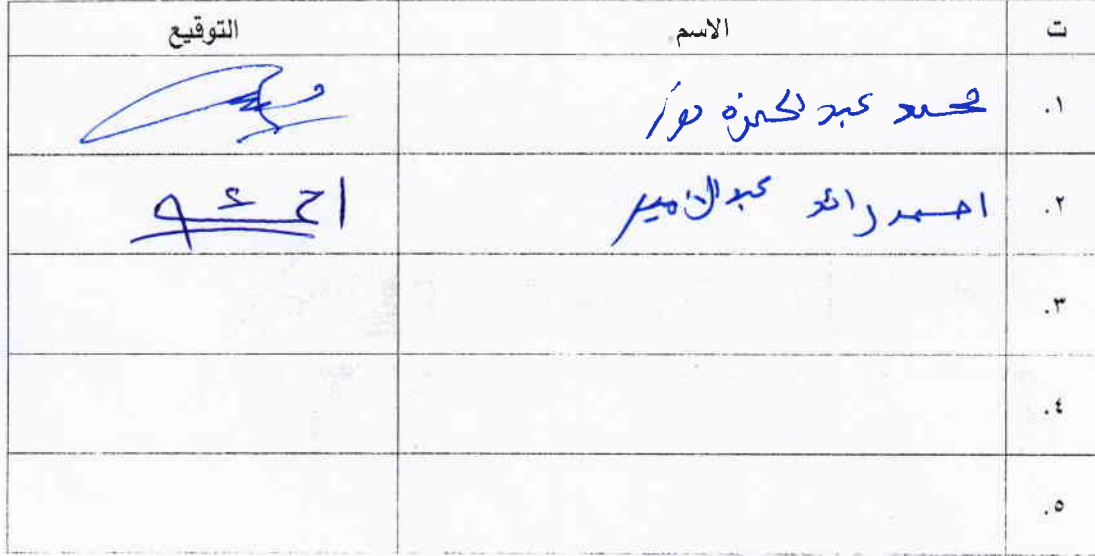 ت الاسم التوقيع
١. محمد عبد الحمزه
٢. احمد رائد عبد الامير
٣.
٤.
٥.